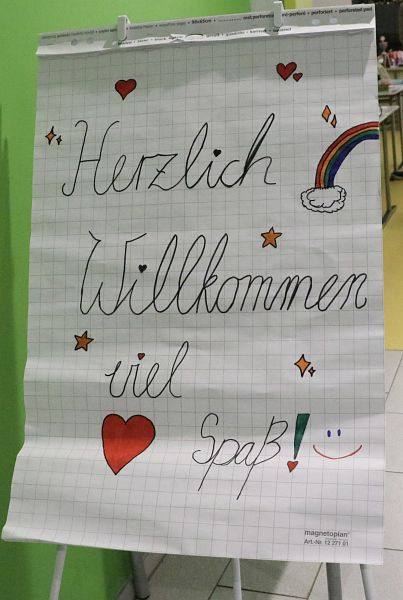 Herzlich
Willkommen
viel
Spaß!
magnetoplan
Art.-Nr. 12 271 01